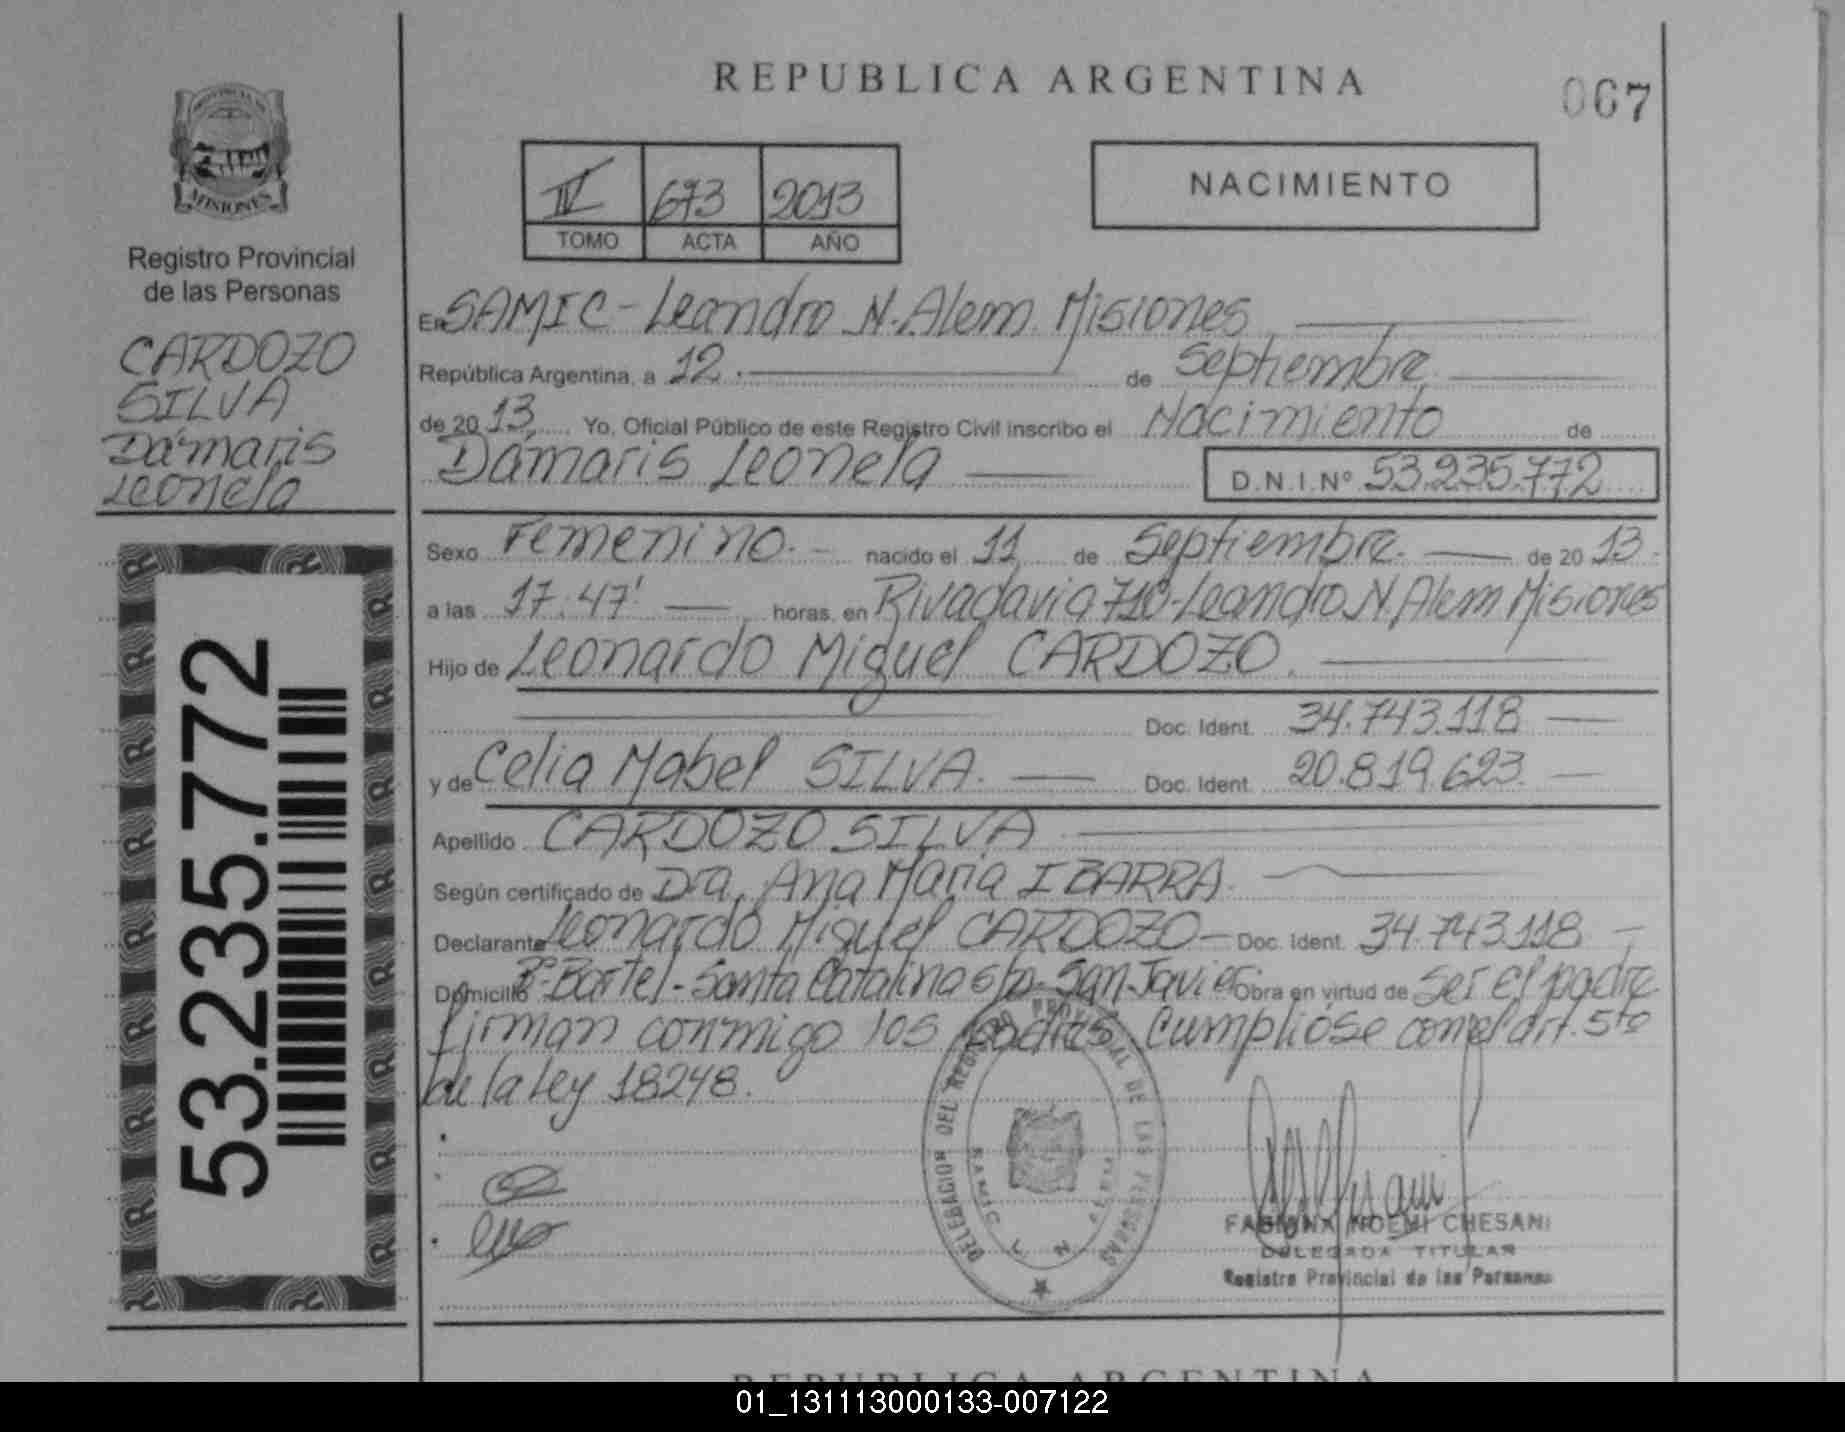 REPUBLICA ARGENTINA
067
PROVINCIA DE
MISIONES
Registro Provincial
de las Personas
CARDOZO
SILVA
Dámaris
Leonela
53.235.772
IV 673 2013
TOMO ACTA AÑO
NACIMIENTO
En SAMIC - Leandro N. Alem. Misiones
República Argentina, a 12. de Septiembre
de 20 13 Yo, Oficial Público de este Registro Civil inscribo el Nacimiento de
Dámaris Leonela D.N.I.Nº 53.235.772
Sexo Femenino. - nacido el 11 de Septiembre. de 20 13.
a las 17.47' horas, en Rivadavia 710 - Leandro N. Alem Misiones
Hijo de Leonardo Miguel CARDOZO.
Doc. Ident. 34.743.118
y de Celia Mabel SILVA. Doc. Ident. 20.819.623.
Apellido CARDOZO SILVA
Según certificado de Dra. Ana Maria IBARRA.
Declarante Leonardo Miguel CARDOZO - Doc. Ident. 34.743.118 -
Domicilio Bº Bartel - Santa Catalina s/n. San Javier. Obra en virtud de ser el padre
firman conmigo los padres. Cumplióse con el art. 5to
de la Ley 18248.
DELEGACION DEL REGISTRO PROVINCIAL DE LAS PERSONAS
SAMIC L. N. Alem
FABIANA NOEMI CHESANI
DELEGADA TITULAR
Registro Provincial de las Personas
REPUBLICA ARGENTINA
01_131113000133-007122